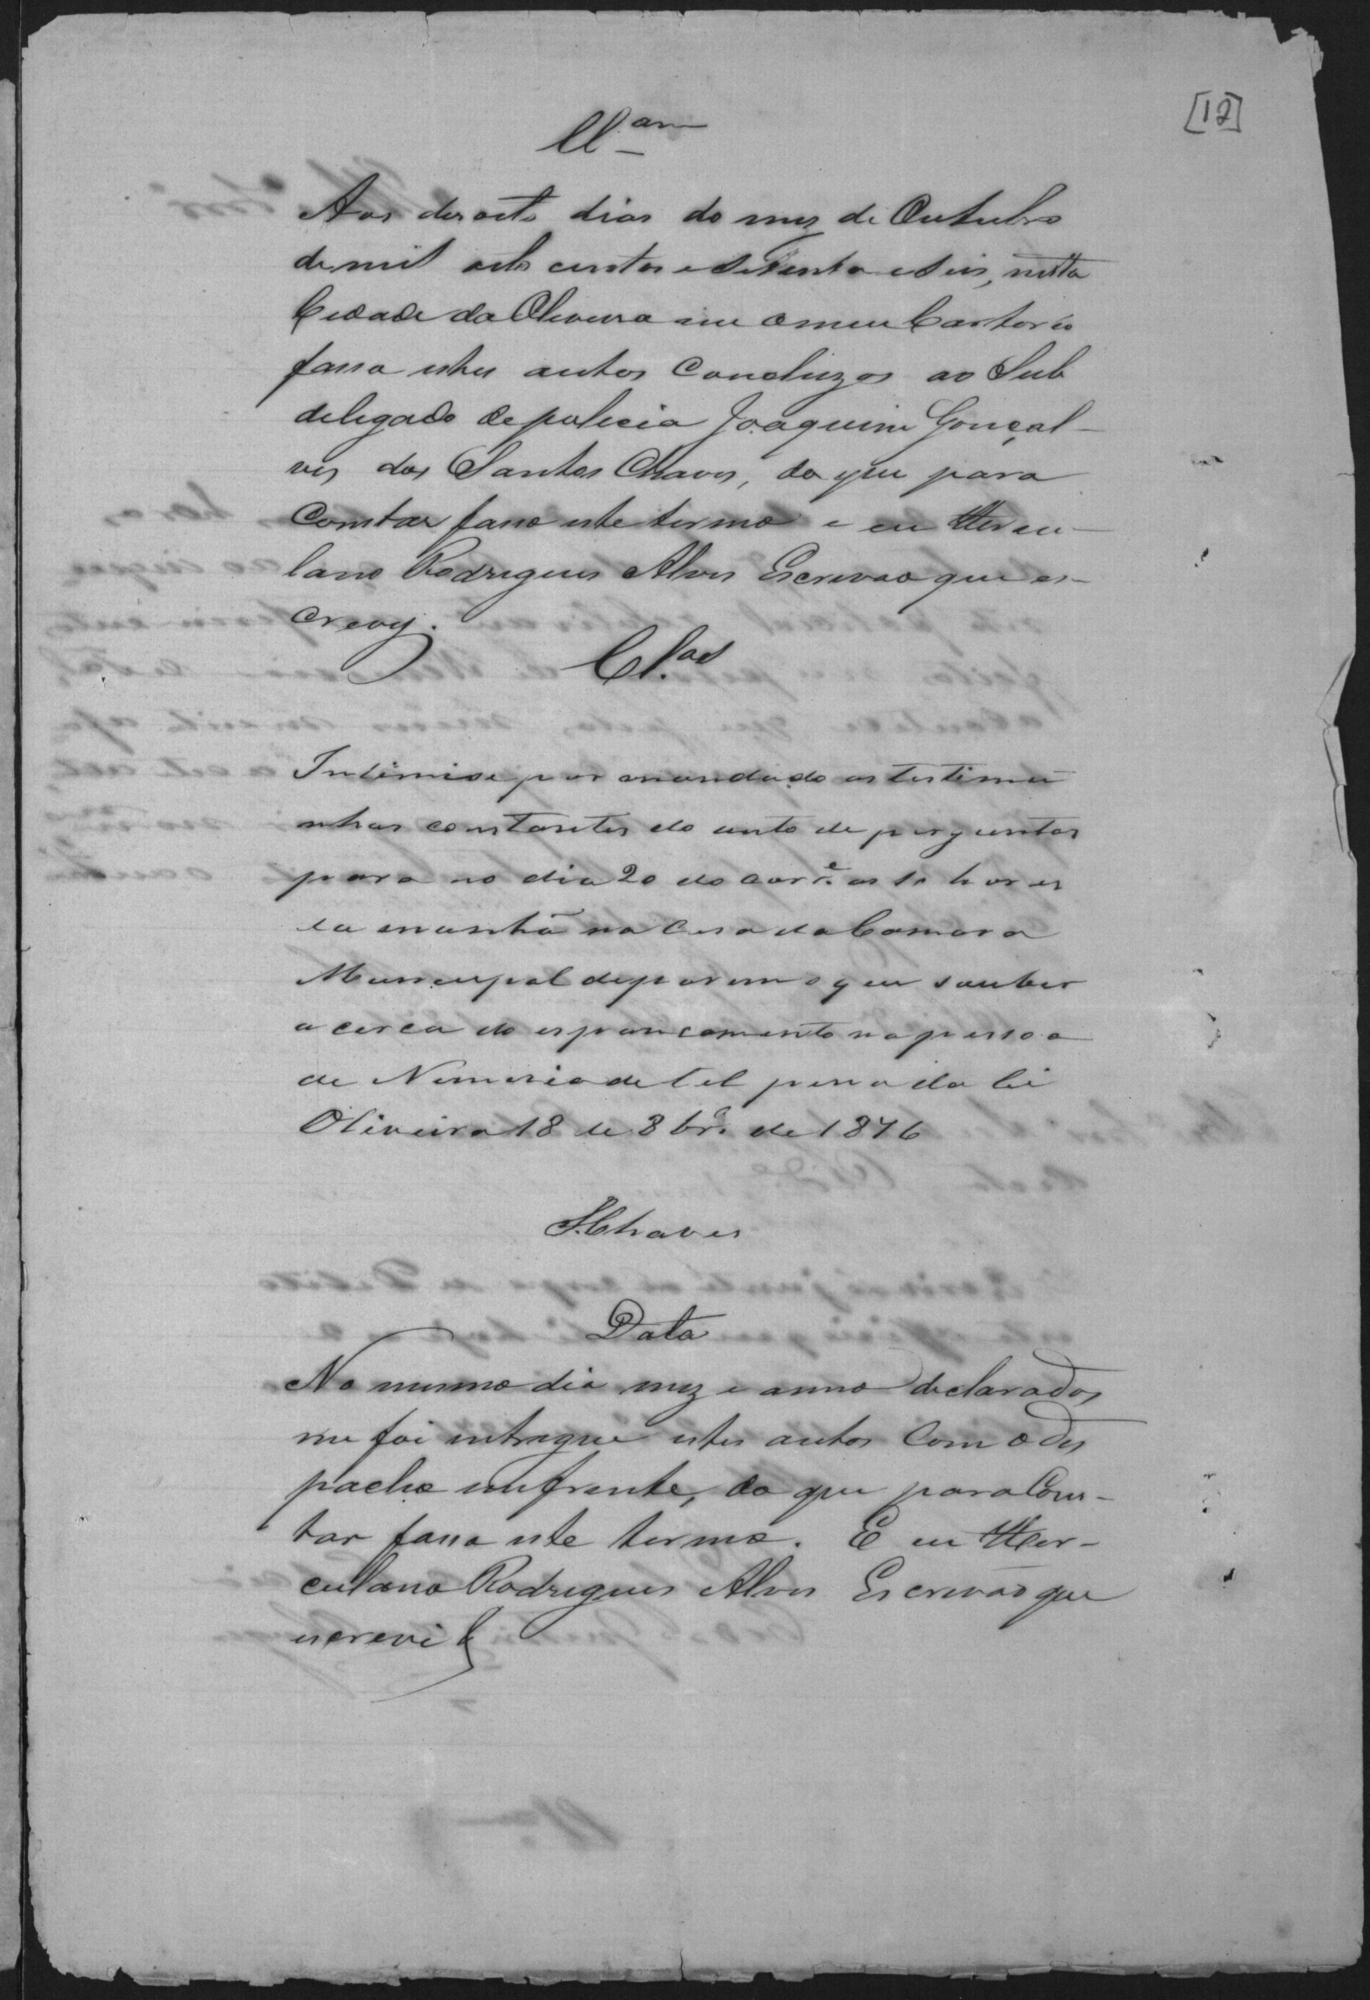 [12]
Cl.am
Aos desoito dias do mez de Outubro
de mil oito centos e Setenta e Seis, nesta
Cidade da Oliveira em o meu Cartorio
fasso estes autos Concluzos ao Sub
delegado de policia Joaquim Gonçal-
ves dos Santos Chaves, do que para
Constar fasso este termo e eu Hercu-
lano Rodrigues Alves Escrivão que es-
crevy.
Cl.os
Intimise por mandado as testimu
nhas constantes do auto de perguntas
para no dia 20 do corr.e as 10 horas
da manhã na Casa da Camara
Municipal deporem o que souber
a cerca do espancamento na pessoa
de Nemesio de tal pena da lei
Oliveira 18 de 8br.o de 1876
S.Chaves
Data
No mesmo dia mez e anno declarados
me foi entregue estes autos Com o des
pacho emfrente, do que para Cons-
tar fasso este termo. E eu Her-
culano Rodrigues Alves Escrivão que
escrevi